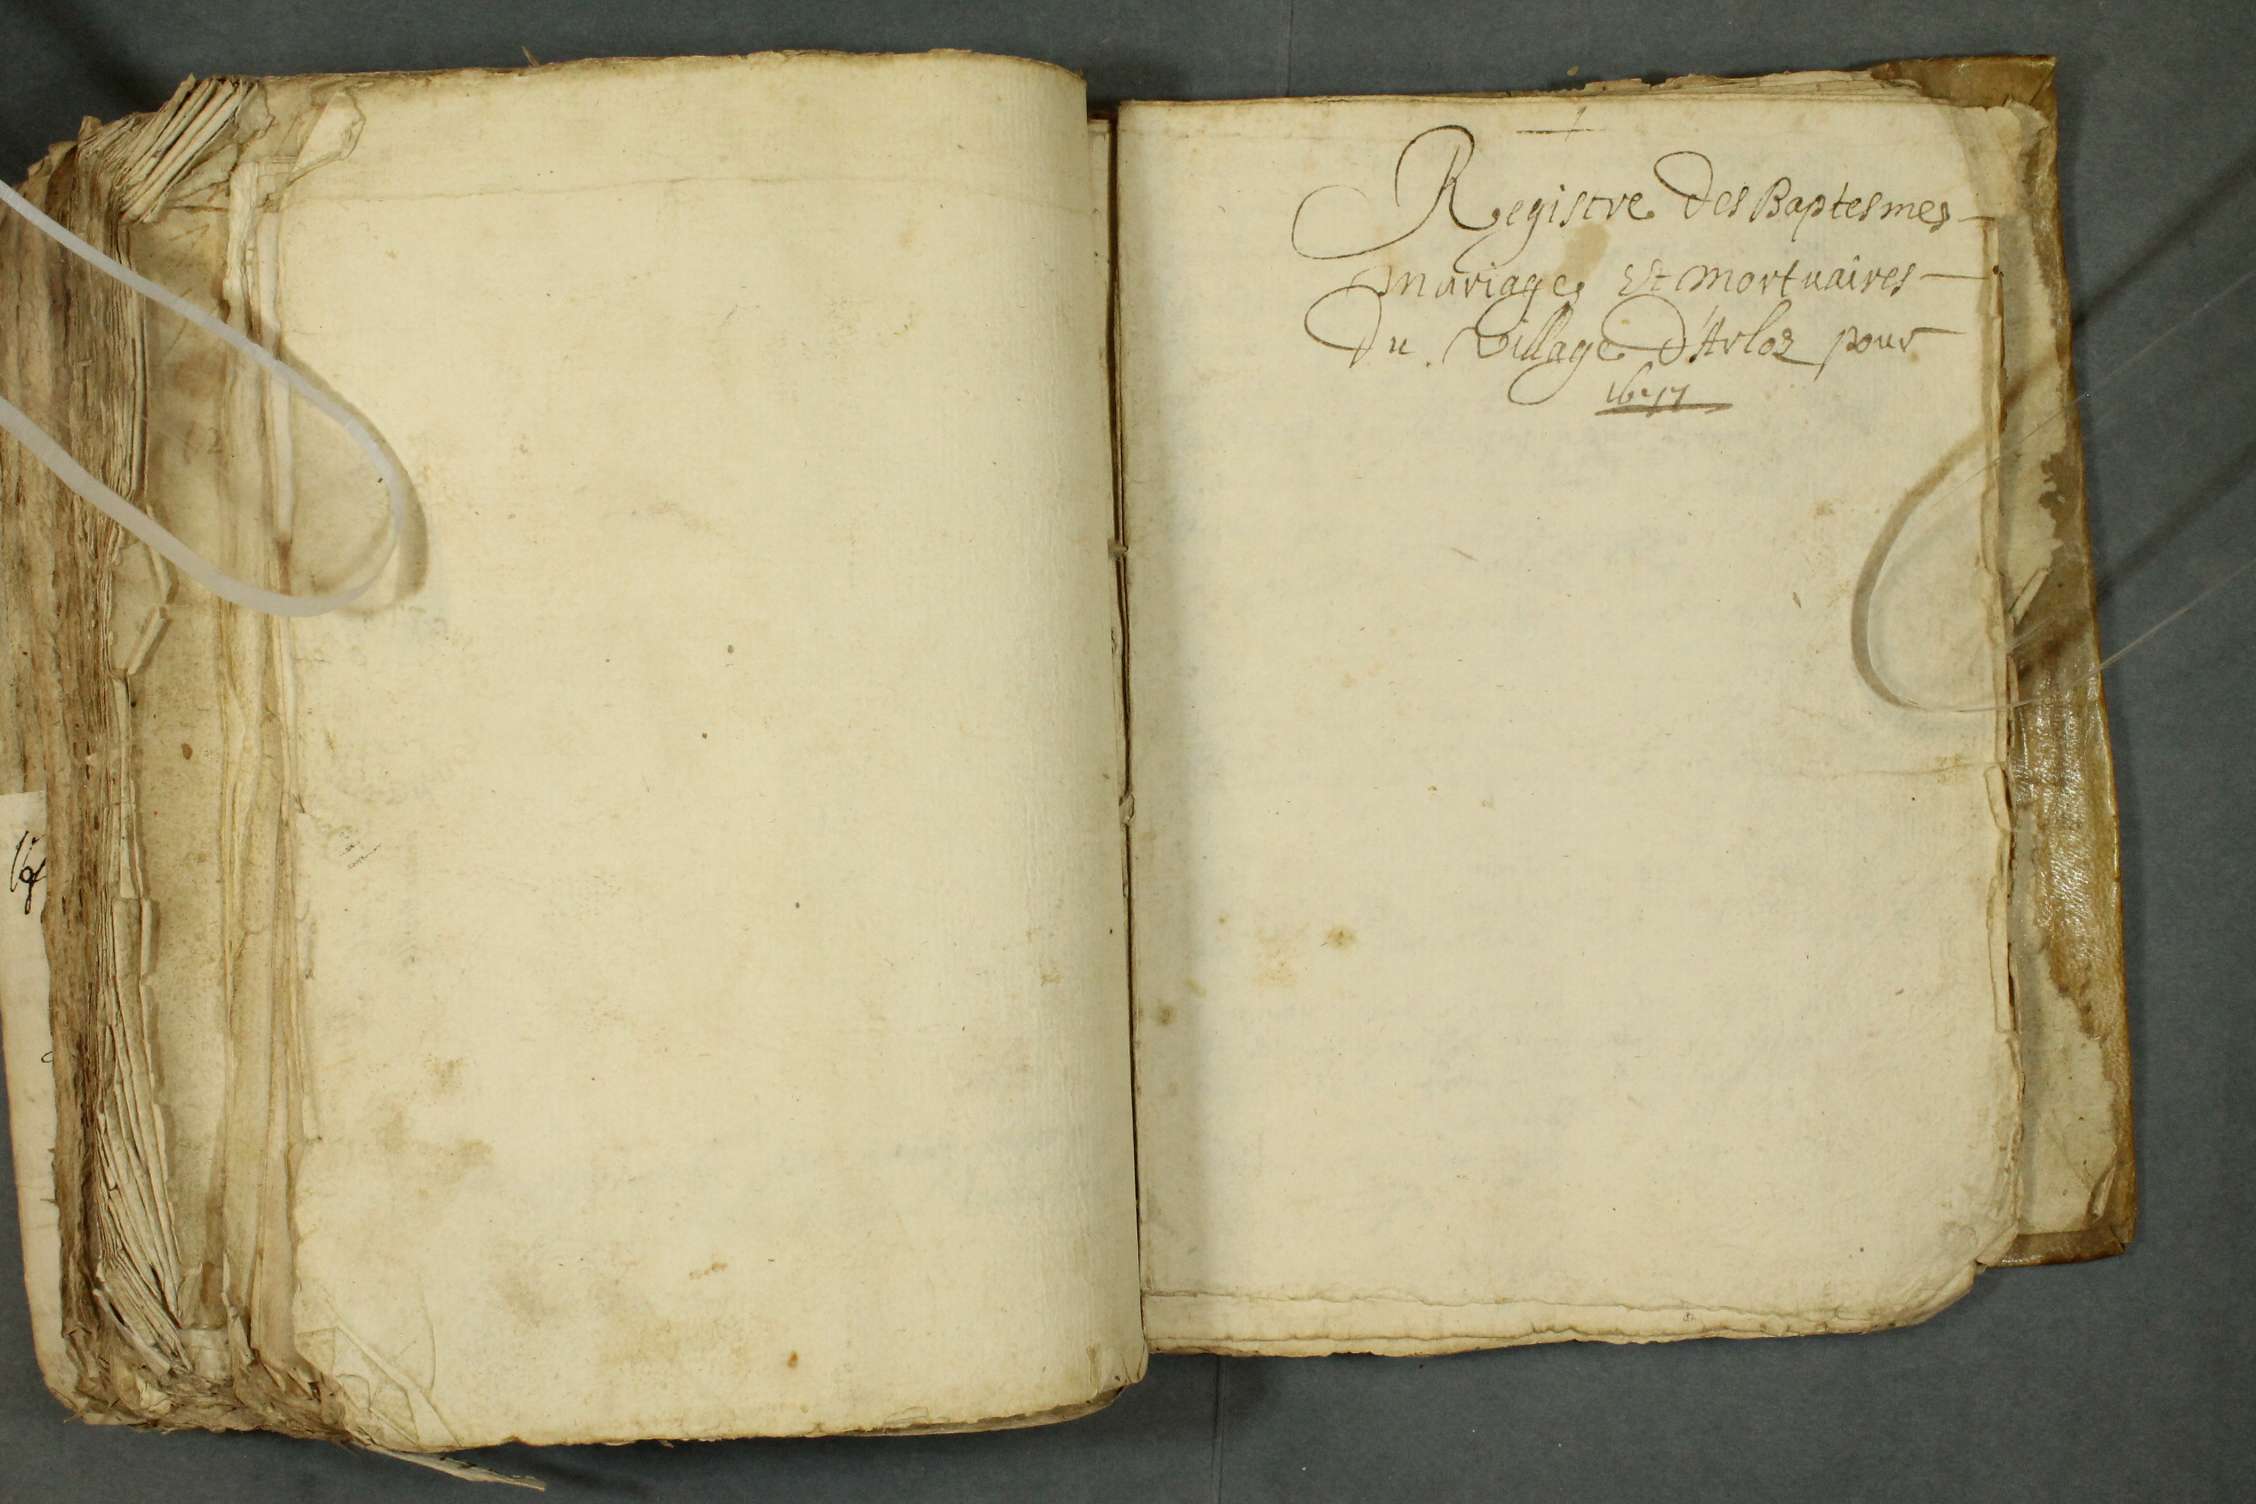 Registre des Baptesmes
mariages Et mortuaires
du Village d'Arloz pour
1677